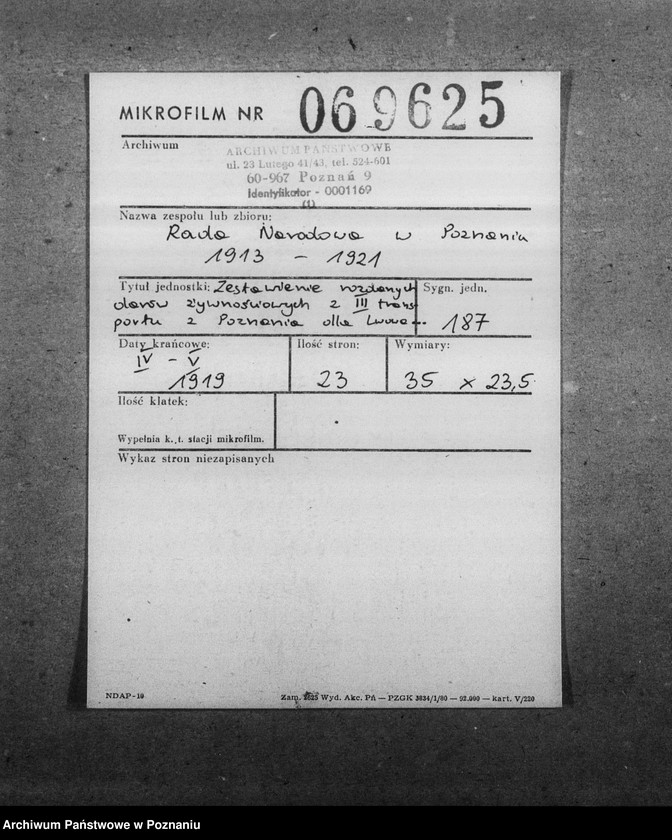 MIKROFILM NR 069625
Archiwum
ARCHIWUM PAŃSTWOWE
ul. 23 Lutego 41/43, tel. 524-601
60-967 Poznań 9
Identyfikator - 0001169
(1)
Nazwa zespołu lub zbioru:
Rada Narodowa w Poznaniu
1913 - 1921
Tytuł jednostki: Zestawienie rozdanych
darów żywnościowych z III trans
portu z Poznania dla Lwowa...
Sygn. jedn.
187
Daty krańcowe:
IV - V
1919
Ilość stron:
23
Wymiary:
35 x 23,5
Ilość klatek:
Wypełnia k. t. stacji mikrofilm.
Wykaz stron niezapisanych
NDAP-10
Zam. Wyd. Akc. Pń — PZGK 3834/1/80 — 92.000 — kart. V/220
Archiwum Państwowe w Poznaniu